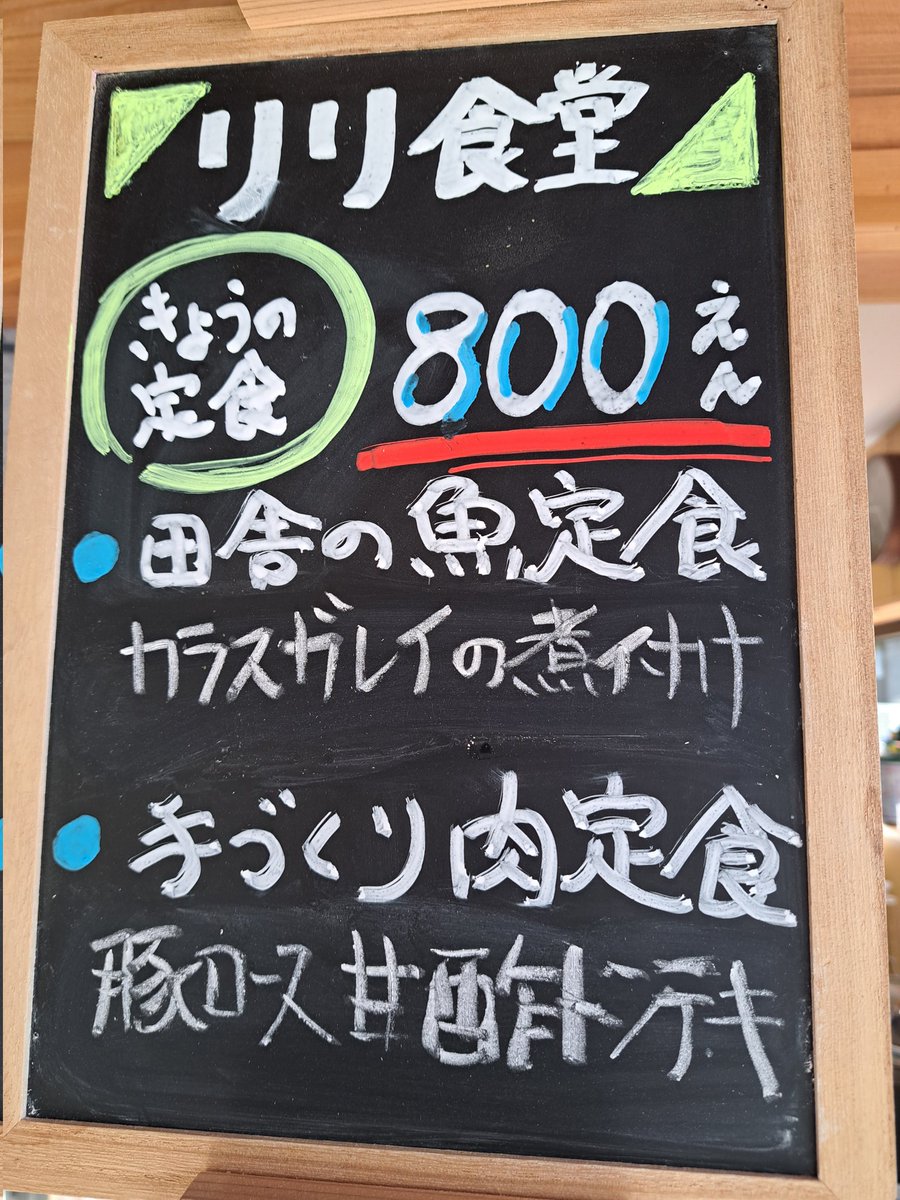 リリ食堂
きょうの
定食
800えん
田舎の魚定食
カラスガレイの煮付け
手づくり肉定食
豚ロース甘酢トンテキ